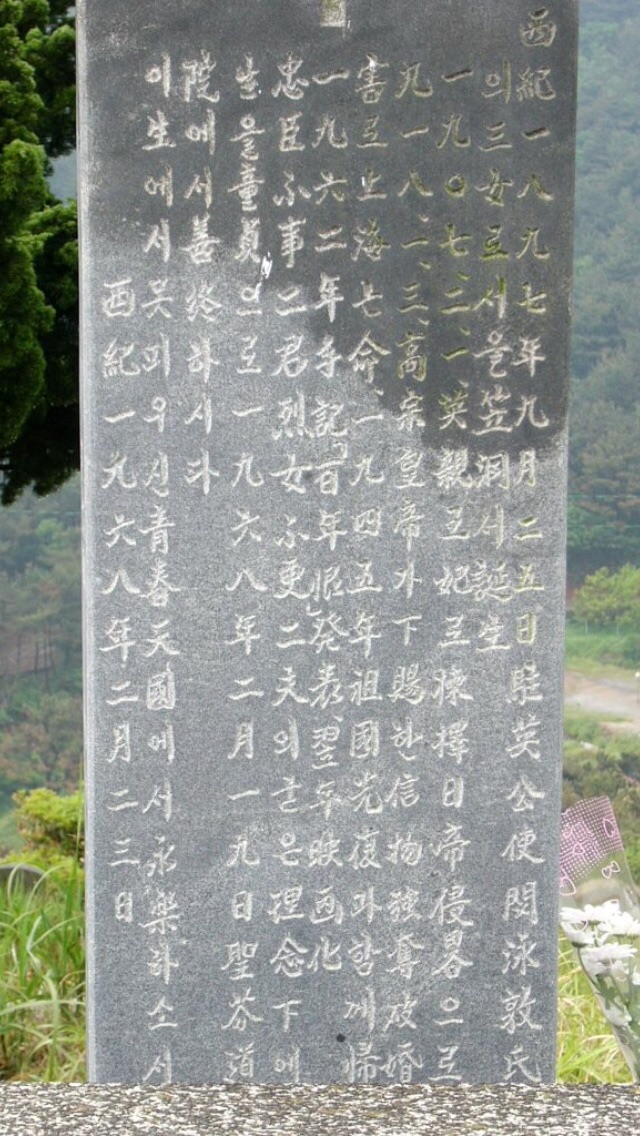 西紀一八九七年九月二五日駐英公使閔泳敦氏
의三女로서을笠洞서誕生
一九〇七、二、一、英親王妃로揀擇日帝侵畧으로
九一八、一、三、高宗皇帝가下賜한信物强奪破婚
害로上海亡命、一九四五年祖國光復과함께歸
一九六二年手記百年恨発表、翌年映画化
忠臣不事二君烈女不更二夫의굳은理念下에
生을童貞으로一九六八年二月一九日聖芬道
院에서善終하시다
이生에서못피우신青春天國에서永樂하소서
西紀一九六八年二月二三日